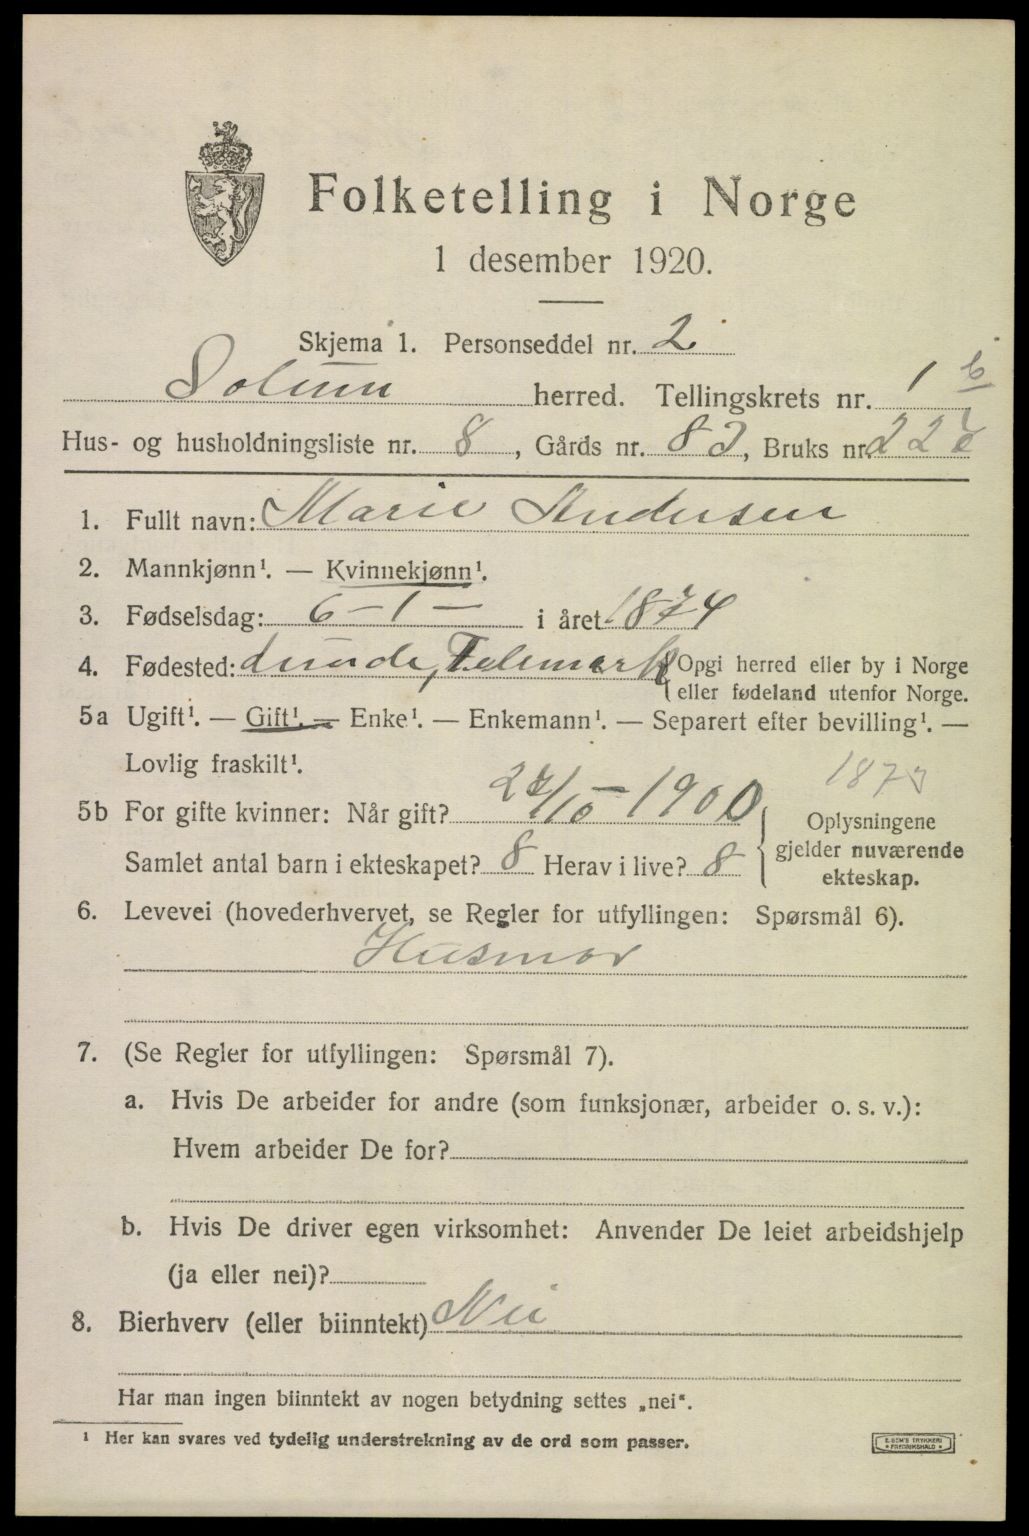 Folketelling i Norge
1 desember 1920.
Skjema 1. Personseddel nr. 2
Solum herred. Tellingskrets nr. 1 b
Hus- og husholdningsliste nr. 8, Gårds nr. 82, Bruks nr. 227
1. Fullt navn: Marie Andersen
2. Mannkjønn¹. — Kvinnekjønn¹.
3. Fødselsdag: 6 – 1 – i året 1874
4. Fødested: Lunde, Telemark
Opgi herred eller by i Norge
eller fødeland utenfor Norge.
5a Ugift¹. — Gift¹. — Enke¹. — Enkemann¹. — Separert efter bevilling¹. —
Lovlig fraskilt¹.
5b For gifte kvinner: Når gift? /10 – 1900
Samlet antal barn i ekteskapet? 8 Herav i live? 8
Oplysningene
gjelder nuværende
ekteskap.
6. Levevei (hovederhvervet, se Regler for utfyllingen: Spørsmål 6).
Husmor
7. (Se Regler for utfyllingen: Spørsmål 7).
a. Hvis De arbeider for andre (som funksjonær, arbeider o. s. v.):
Hvem arbeider De for?
b. Hvis De driver egen virksomhet: Anvender De leiet arbeidshjelp
(ja eller nei)?
8. Bierhverv (eller biinntekt) Nei
Har man ingen biinntekt av nogen betydning settes „nei“.
¹ Her kan svares ved tydelig understrekning av de ord som passer.
E. SEM'S TRYKKERI
• FREDRIKSHALD •